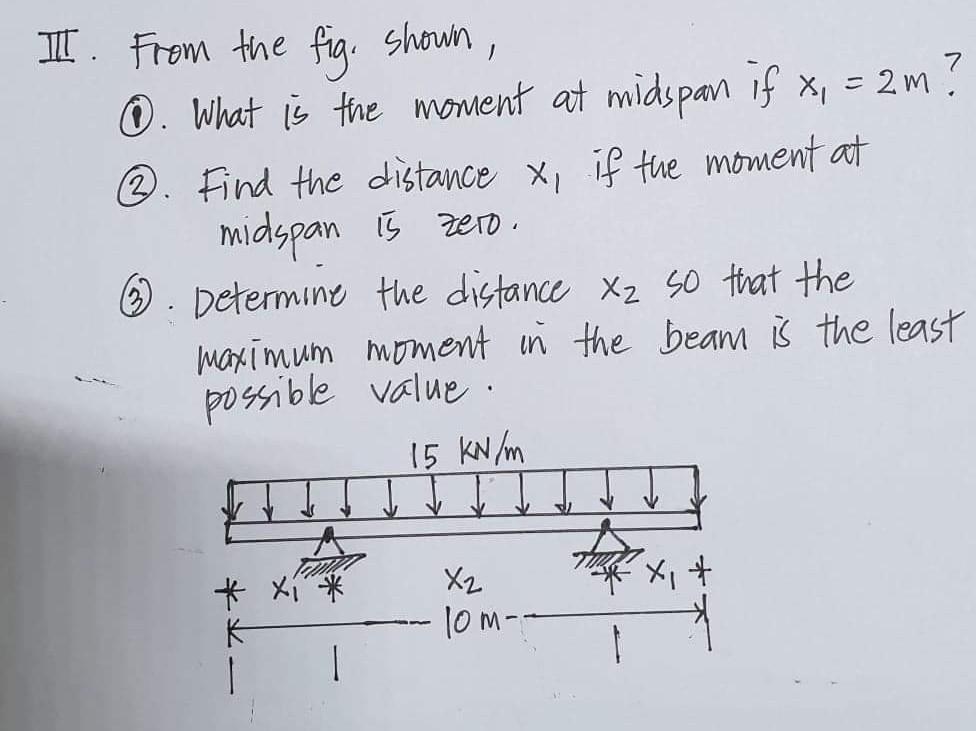 III. From the fig. shown,
①. What is the moment at midspan if x₁ = 2m?
②. Find the distance x₁ if the moment at
midspan is zero.
③. Determine the distance x₂ so that the
maximum moment in the beam is the least
possible value.
15 KN/m
x₁ x₂ x₁
10 m